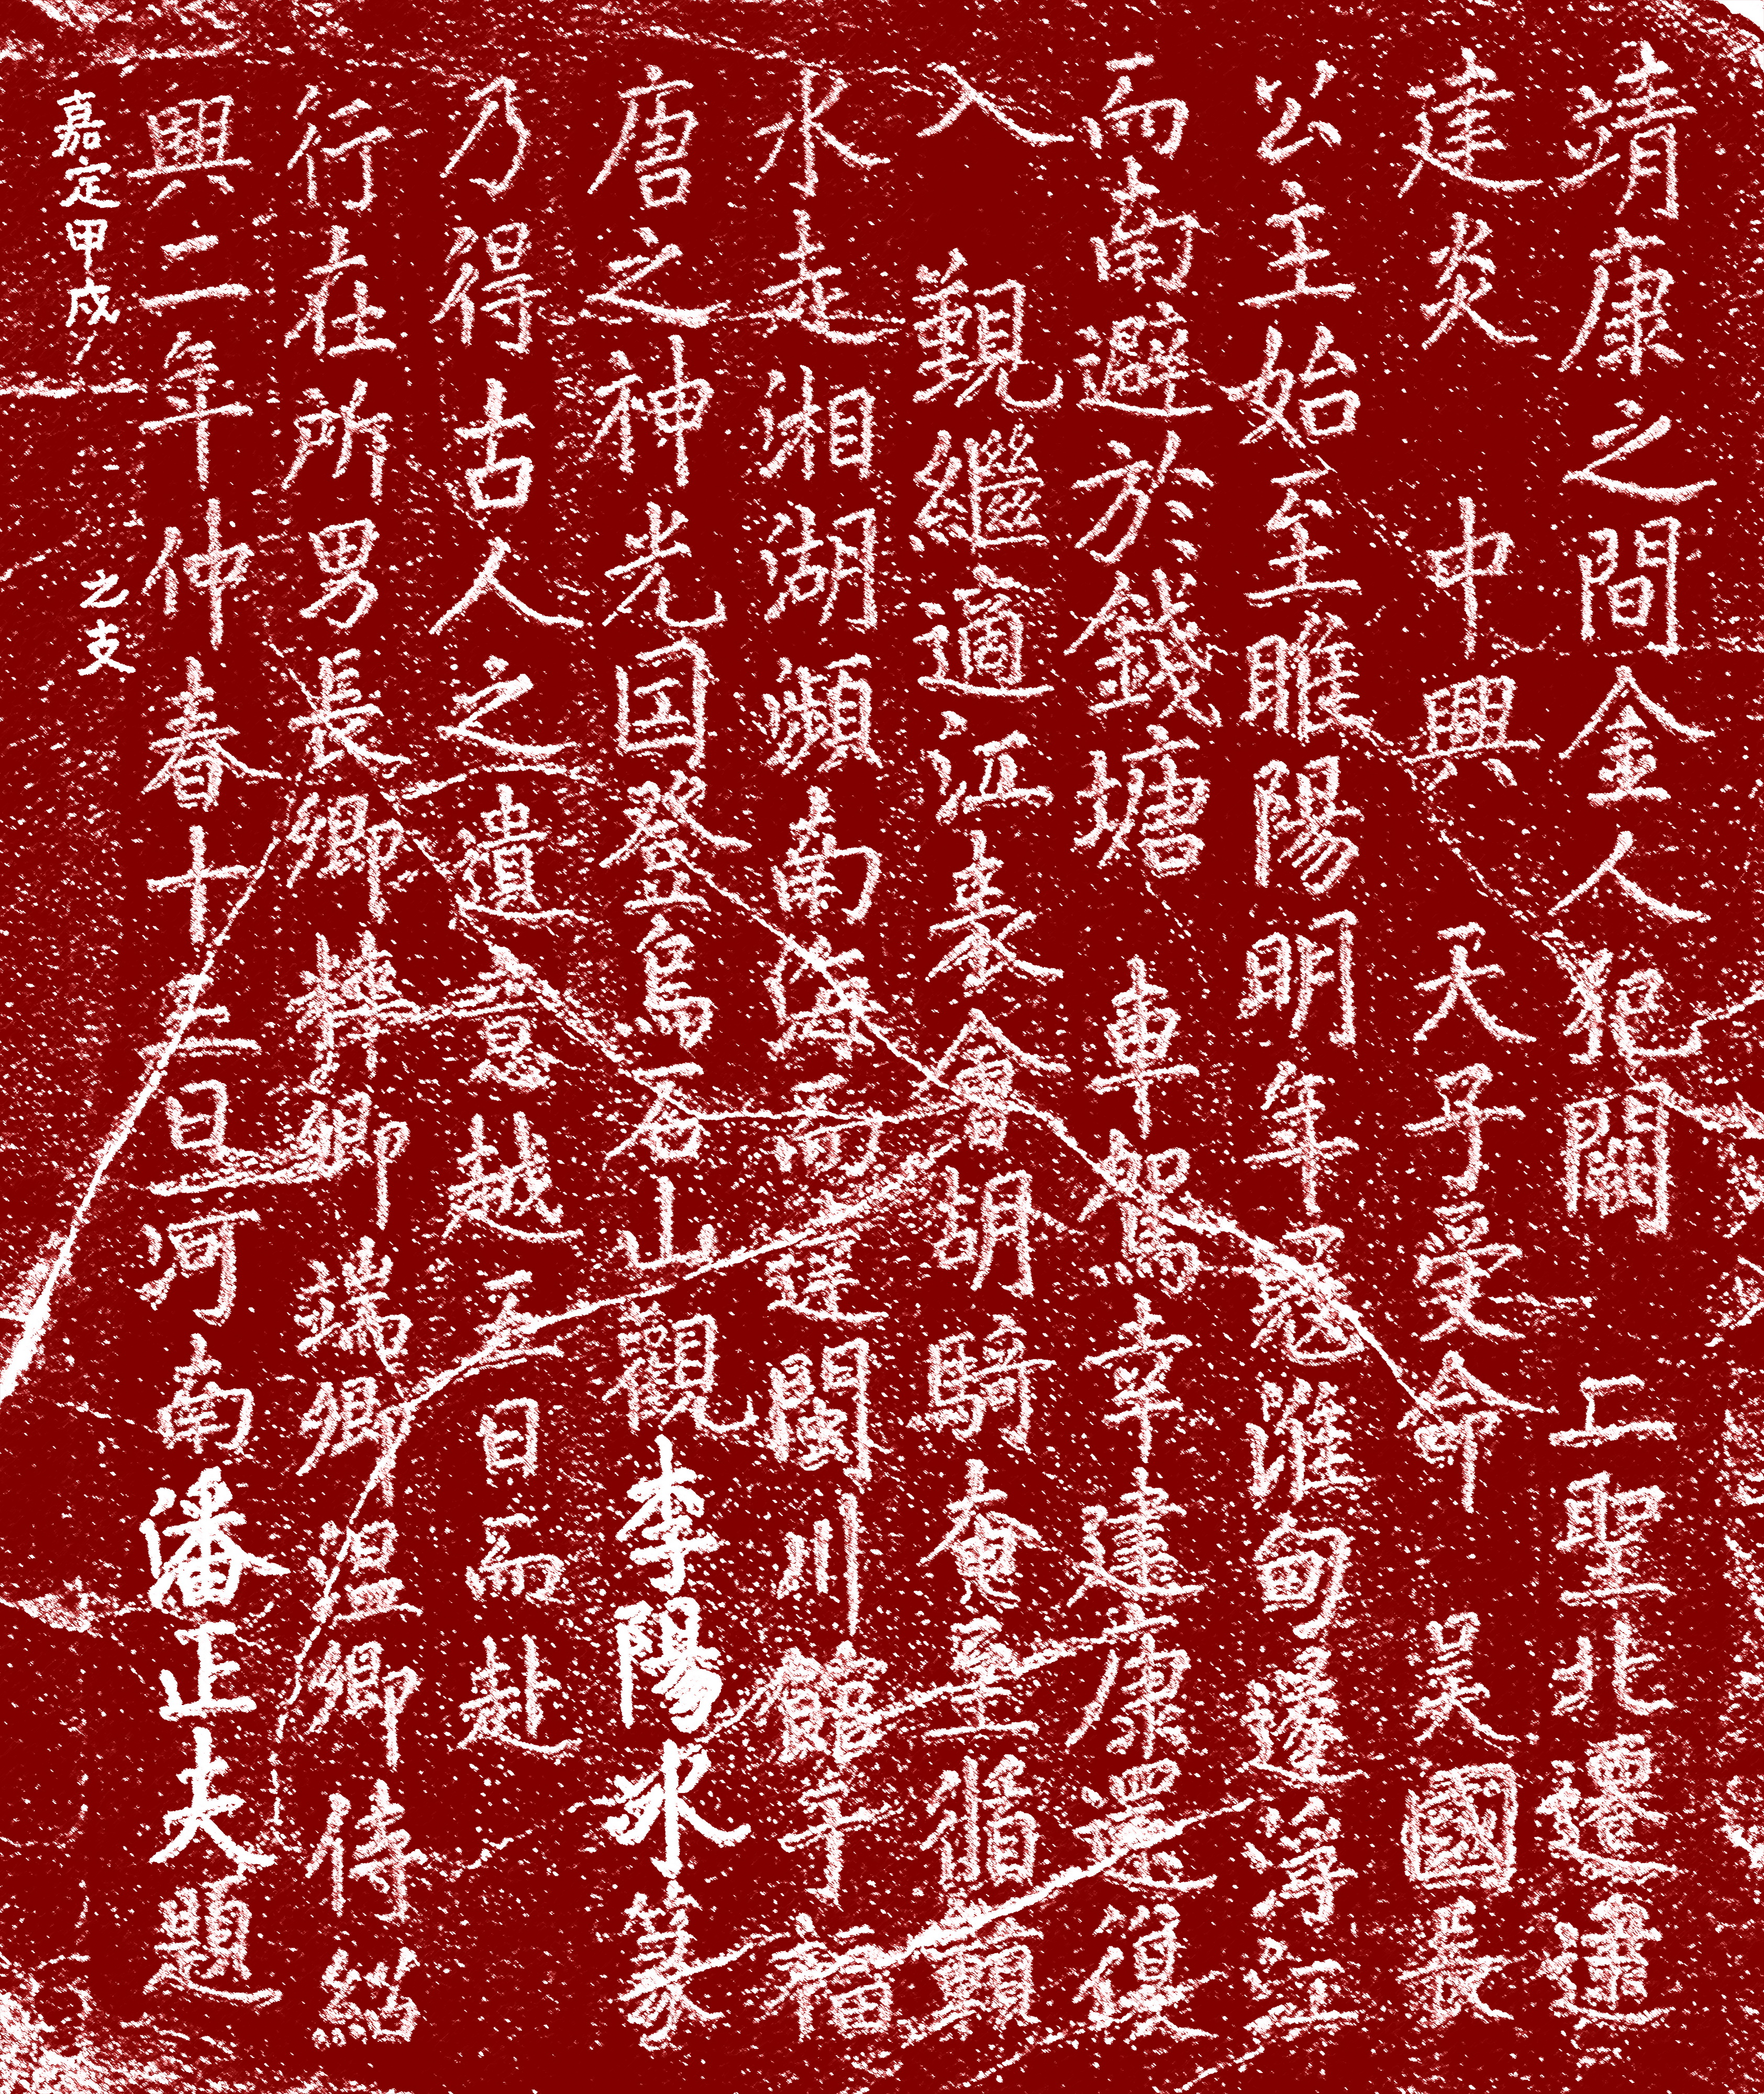 靖康之間金人犯闕 二聖北遷逮
建炎 中興 天子受命 吴國長
公主始至睢陽明年冦淮甸遂浮江
而南避於錢塘 車駕幸建康還復
入 覲繼適江表會胡騎奄至循贛
水走湘湖瀕南海而達閩川館于福
唐之神光国登烏石山觀李陽冰篆
乃得古人之遺意越五日而赴
行在所男長卿粹卿端卿温卿侍紹
興二年仲春十五日河南潘正夫題
嘉定甲戌 之支